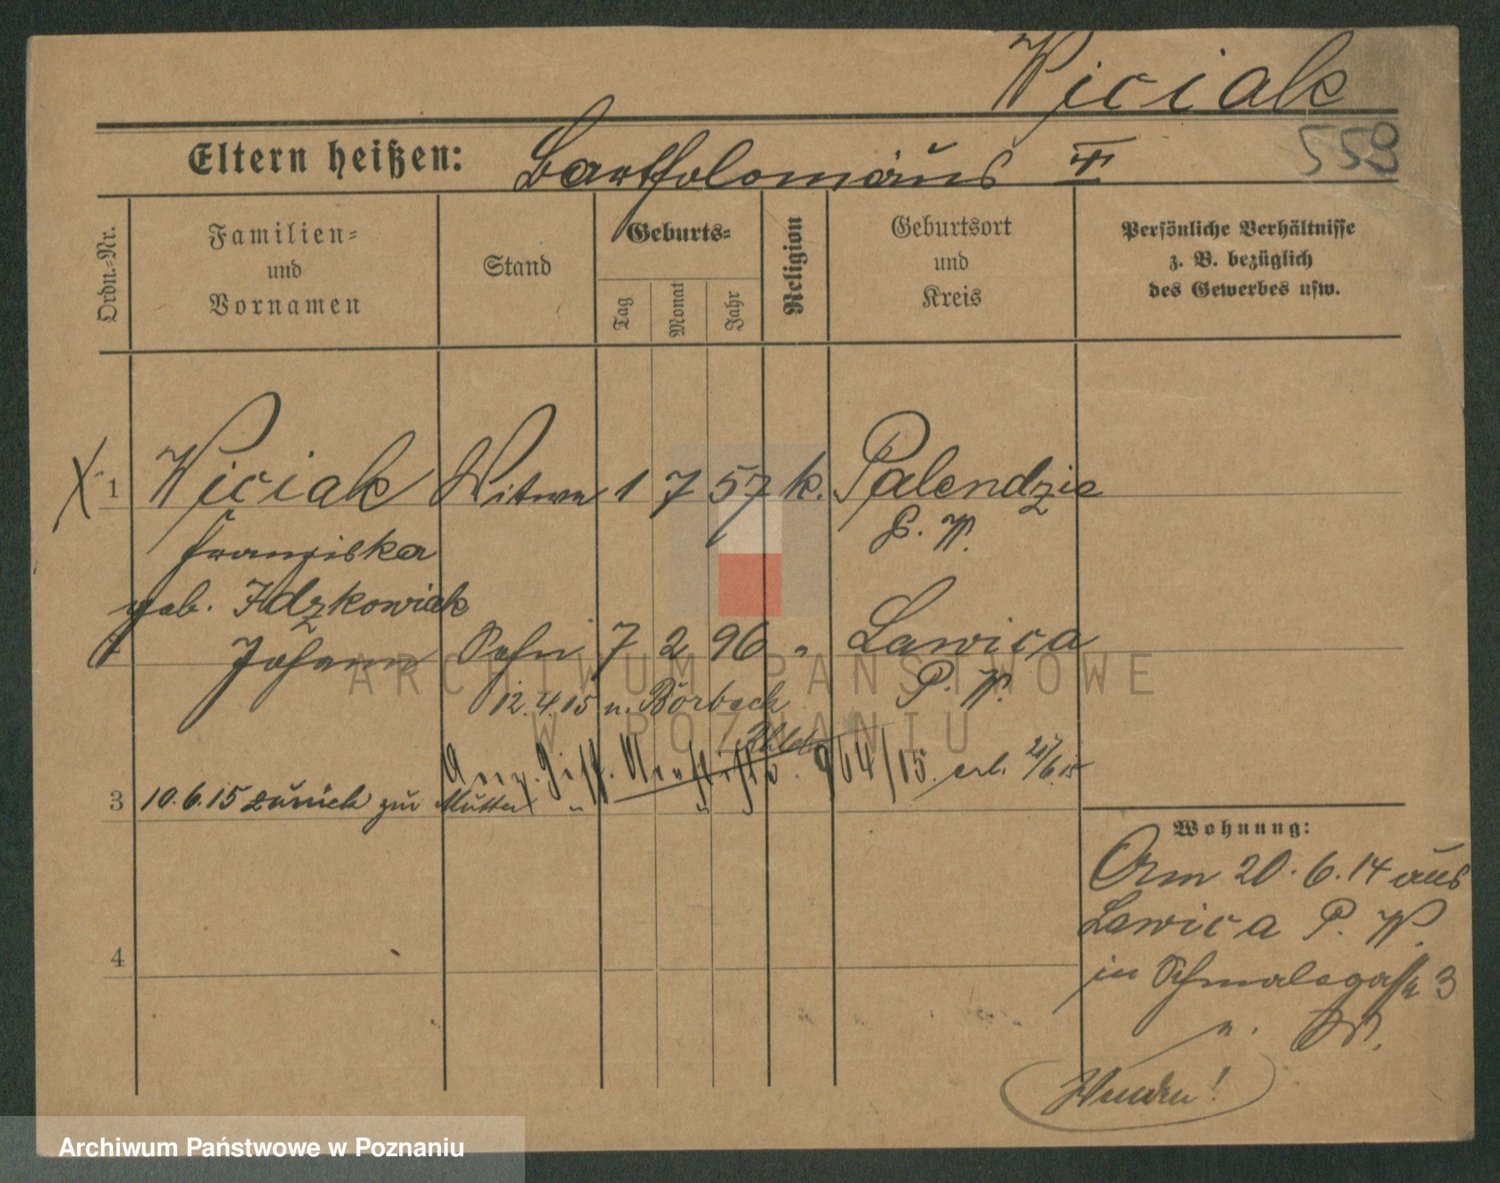 Wiciak
558
Eltern heißen: Bartholomäus
Ordn.-Nr.
Familien-
und
Vornamen
Stand
Geburts-
Tag
Monat
Jahr
Religion
Geburtsort
und
Kreis
Persönliche Verhältnisse
z. B. bezüglich
des Gewerbes usw.
1 Wiciak Witwe 1 7 57 k. Palendzie
Franziska P. W.
geb. Idzkowiak
Johann Sohn 7 2 96 " Lawica
P. W.
12.4.15 n. Borbeck
964/15.
3 10.6.15 zurück zur Mutter
4
Wohnung:
Am 20.6.14 aus
Lawica P. W.
in Schmalegasse 3
Wenden!
ARCHIWUM PAŃSTWOWE
W POZNANIU
Archiwum Państwowe w Poznaniu